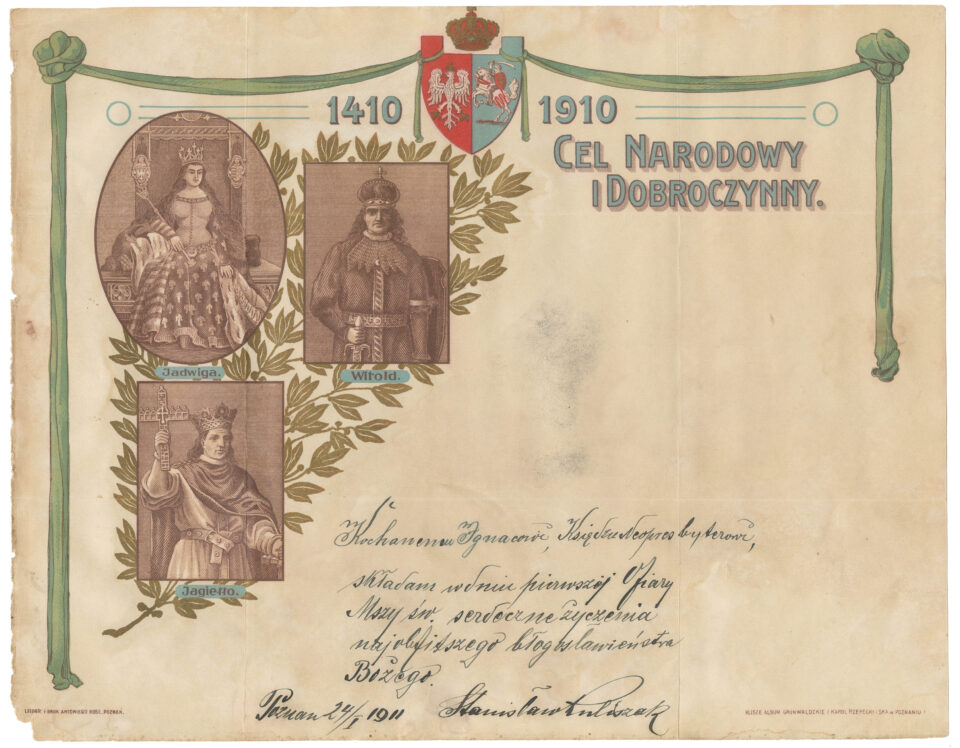 1410 1910
CEL NARODOWY
I DOBROCZYNNY.
Jadwiga.
Witold.
Jagiełło.
Kochanemu Ignacowi, Księdzu Neoprezbyterowi,
składam w dniu pierwszéj Ofiary
Mszy św. serdeczne życzenia
najobfitszego błogosławieństwa
Bożego.
Poznań 24/I 1911 Stanisław Kuliszak
I DRUK ANTONIEGO ROSE, POZNAŃ.
KLISZE ALBUM GRUNWALDZKIE / KAROL RZEPECKI I SKA W POZNANIU /